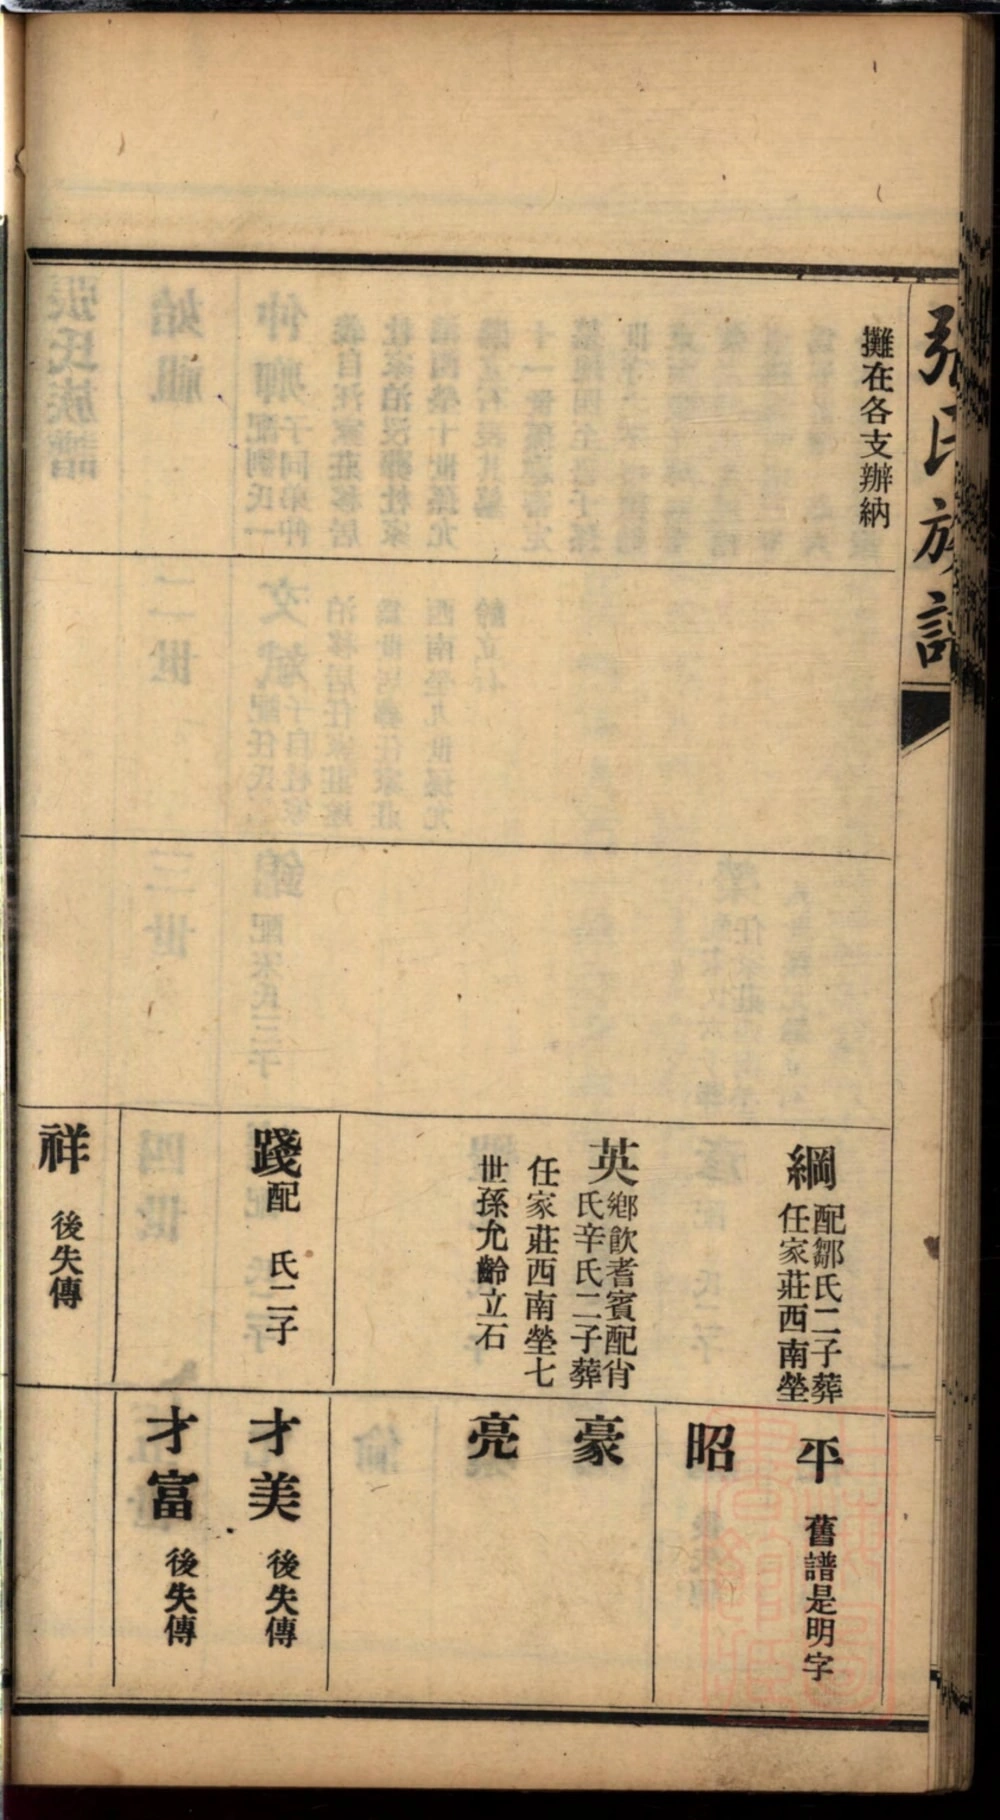 張氏族譜
攤在各支辦納
綱
配鄒氏二子葬
任家莊西南塋
英
鄉飲耆賓配肖
氏辛氏二子葬
任家莊西南塋七
世孫允齡立石
踐
配　氏二子
祥
後失傳
平
舊譜是明字
昭
豪
亮
才美
後失傳
才富
後失傳